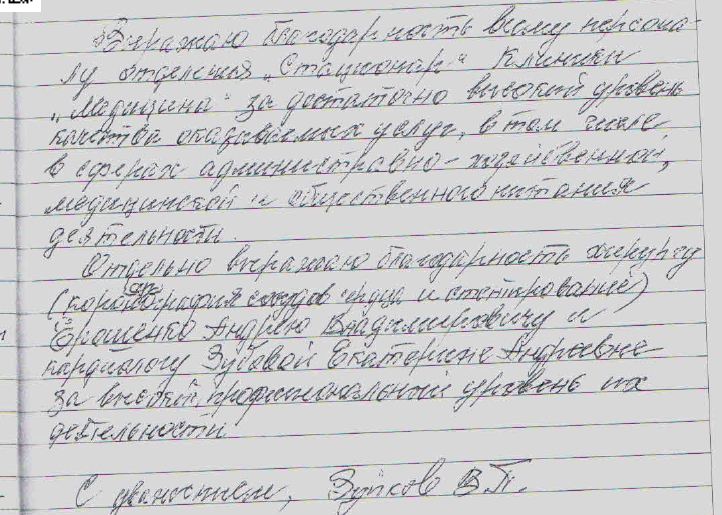 Выражаю благодарность всему персона-
лу отделения „Стационар" Клиники
„Медицина" за достаточно высокий уровень
качества оказываемых услуг, в том числе
в сферах административно-хозяйственной,
медицинской и общественного питания
деятельности.
Отдельно выражаю благодарность хирургу
(коронарография сосудов сердца и стентирование)
Ерошенко Андрею Владимировичу и
кардиологу Зубовой Екатерине Андреевне
за высокий профессиональный уровень их
деятельности.
С уважением, В.П.